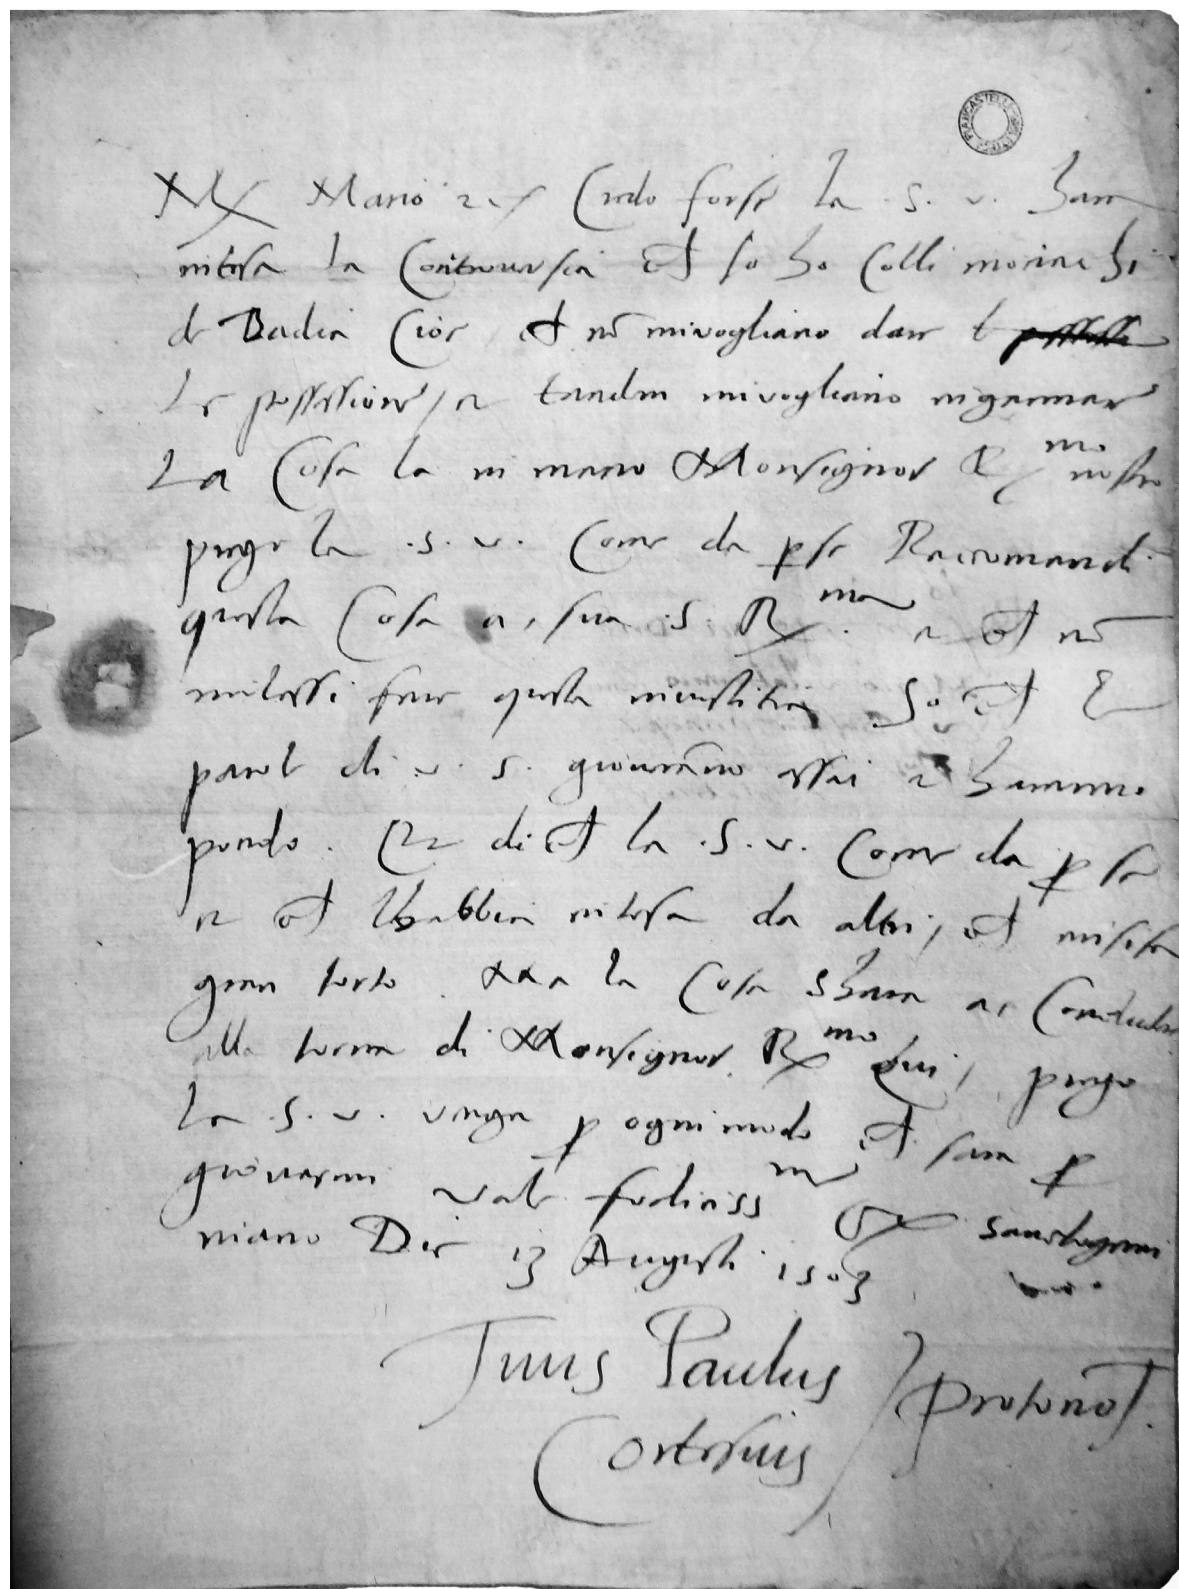 Mario Credo forse la .S. v. hara
intesa la Controversia ch Io ho Colli monachi
de Badia Cioe ch nō mi vogliano dare
le possessione / et tandem mi vogliano ingannar
La Cosa la in mano Monsignor R mo nostro
prego la .S. v. Come da p se Raccomandi
questa Cosa a, sua .S. R ma et ch nō
mi lassi fare questa iniustitia So ch le
parole di v. S. giovarāno assai et haranno
pondo. di ch la .S. v. Come da p se
et ch lhabbia intesa da altri, ch mi si fa
gran torto. Ma la Cosa shara a, Concludere
alla torna di Monsignor R mo qui, prego
la .S. v. venga p ogni modo ch sara p
giovarmi Vale foeliciss me Ex Sancto gemi
niano Die 13 Augusti 1503
Tuus Paulus Protonot.
Cortesius
PIANCASTELLI